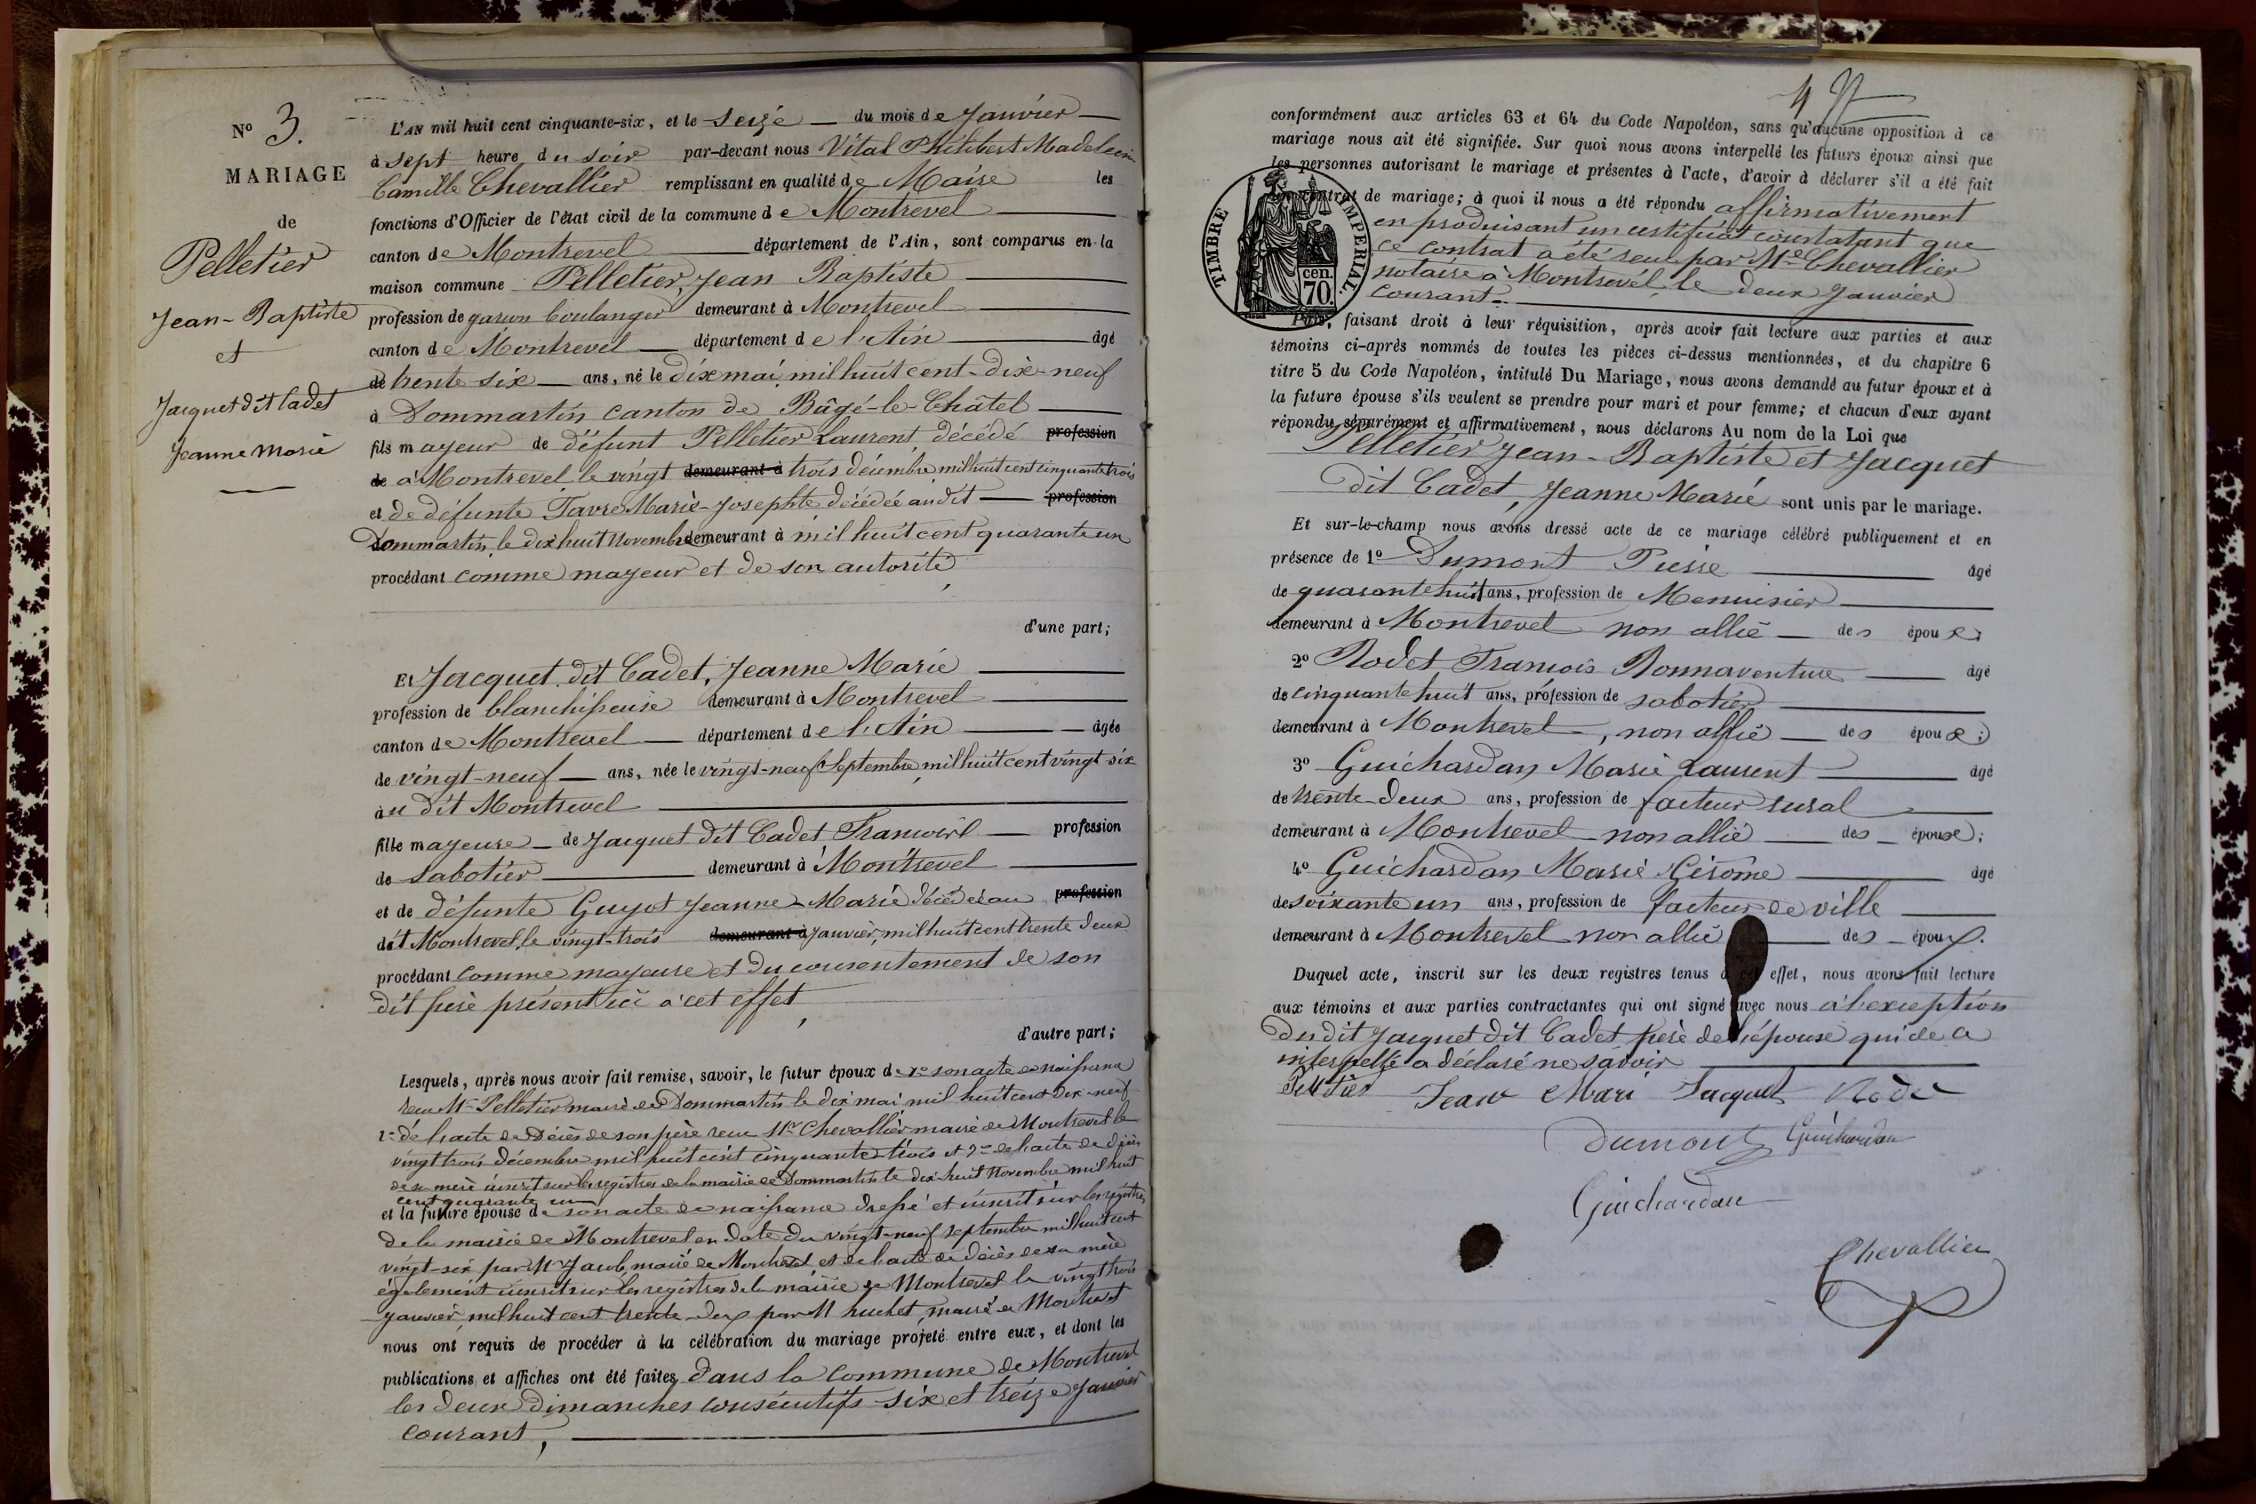 N° 3.
MARIAGE
de
Pelletier
Jean-Baptiste
et
Jacquet dit Cadet
Jeanne Marie
L'AN mil huit cent cinquante-six, et le seize du mois de Janvier
à sept heure du soir par-devant nous Vital Philibert Madelein
Camille Chevallier remplissant en qualité de Maire les
fonctions d'Officier de l'état civil de la commune de Montrevel
canton de Montrevel département de l'Ain, sont comparus en la
maison commune Pelletier, Jean Baptiste
profession de garcon boulanger demeurant à Montrevel
canton de Montrevel département de l'Ain âgé
de trente six ans, né le dix mai, mil huit cent-dix-neuf
à Dommartin canton de Bâgé-le-Châtel
fils mayeur de défunt Pelletier Laurent, décédé profession
de à Montrevel le vingt demeurant à trois décembre mil huit cent cinquante trois
et de défunte Favre Marie-Josephte décédée audit profession
Dommartin le dix huit Novembre demeurant à mil huit cent quarante un
procédant comme mayeur et de son autorité,
d'une part;
Et Jacquet dit Cadet, Jeanne Marie
profession de blanchisseuse demeurant à Montrevel
canton de Montrevel département de l'Ain âgée
de vingt-neuf ans, née le vingt-neuf Septembre, mil huit cent vingt six
au dit Montrevel
fille mayeure de Jacquet dit Cadet, Francois profession
de Sabotier demeurant à Montrevel
et de défunte Guyot Jeanne-Marie décédée au profession
dit Montrevel, le vingt-trois demeurant à Janvier, mil huit cent trente deux
procédant comme mayeure et du consentement de son
dit père présent ici à cet effet,
d'autre part;
Lesquels, après nous avoir fait remise, savoir, le futur époux de 1° son acte de naissance
recu Mr Pelletier maire de Dommartin le dix mai mil huit cent dix-neuf
2° de l'acte de décès de son père recu Mr Chevallier maire de Montrevel le
vingt trois décembre mil huit cent cinquante trois et 3° de l'acte de décès
de sa mère inscrit sur les registres de la mairie de Dommartin le dix-huit Novembre mil huit
cent quarante un
et la future épouse de son acte de naissance dressé et inscrit sur les registres
de la mairie de Montrevel en date du vingt-neuf septembre mil huit cent
vingt-six par Mr Jacob, maire de Montrevel et de l'acte de décès de sa mère
également inscrit sur les registres de la mairie de Montrevel le vingt trois
janvier, mil huit cent trente-deux par M huchet, maire de Montrevel
nous ont requis de procéder à la célébration du mariage projeté entre eux, et dont les
publications et affiches ont été faites dans la commune de Montrevel
les deux dimanches consécutifs six et treize Janvier
courant,
4
conformément aux articles 63 et 64 du Code Napoléon, sans qu'aucune opposition à ce
mariage nous ait été signifiée. Sur quoi nous avons interpellé les futurs époux ainsi que
les personnes autorisant le mariage et présentes à l'acte, d'avoir à déclarer s'il a été fait
contrat de mariage; à quoi il nous a été répondu affirmativement
en produisant un certificat constatant que
ce contrat a été recu par Me Chevallier
notaire à Montrevel, le deux Janvier
courant.
TIMBRE IMPERIAL.
cen.
70.
Puis, faisant droit à leur réquisition, après avoir fait lecture aux parties et aux
témoins ci-après nommés de toutes les pièces ci-dessus mentionnées, et du chapitre 6
titre 5 du Code Napoléon, intitulé Du Mariage, nous avons demandé au futur époux et à
la future épouse s'ils veulent se prendre pour mari et pour femme; et chacun d'eux ayant
répondu séparément et affirmativement, nous déclarons Au nom de la Loi que
Pelletier Jean-Baptiste et Jacquet
dit Cadet, Jeanne Marie sont unis par le mariage.
Et sur-le-champ nous avons dressé acte de ce mariage célébré publiquement et en
présence de 1° Dumont Pierre âgé
de quarante huit ans, profession de Menuisier
demeurant à Montrevel non allié des époux;
2° Rodet Francois Bonnaventure âgé
de cinquante huit ans, profession de sabotier
demeurant à Montrevel, non allié des époux;
3° Guichardan Marie Laurent âgé
de trente-deux ans, profession de facteur rural
demeurant à Montrevel non allié des époux;
4° Guichardan Marie Gérôme âgé
de soixante un ans, profession de facteur de ville
demeurant à Montrevel non allié des époux.
Duquel acte, inscrit sur les deux registres tenus à cet effet, nous avons fait lecture
aux témoins et aux parties contractantes qui ont signé avec nous à l'exception
du dit Jacquet dit Cadet père de l'épouse qui de ce
interpellé a déclaré ne savoir
Peltier Jean Mari Jacquet Rodet
Dumont Guichardan
Guichardan
Chevallier